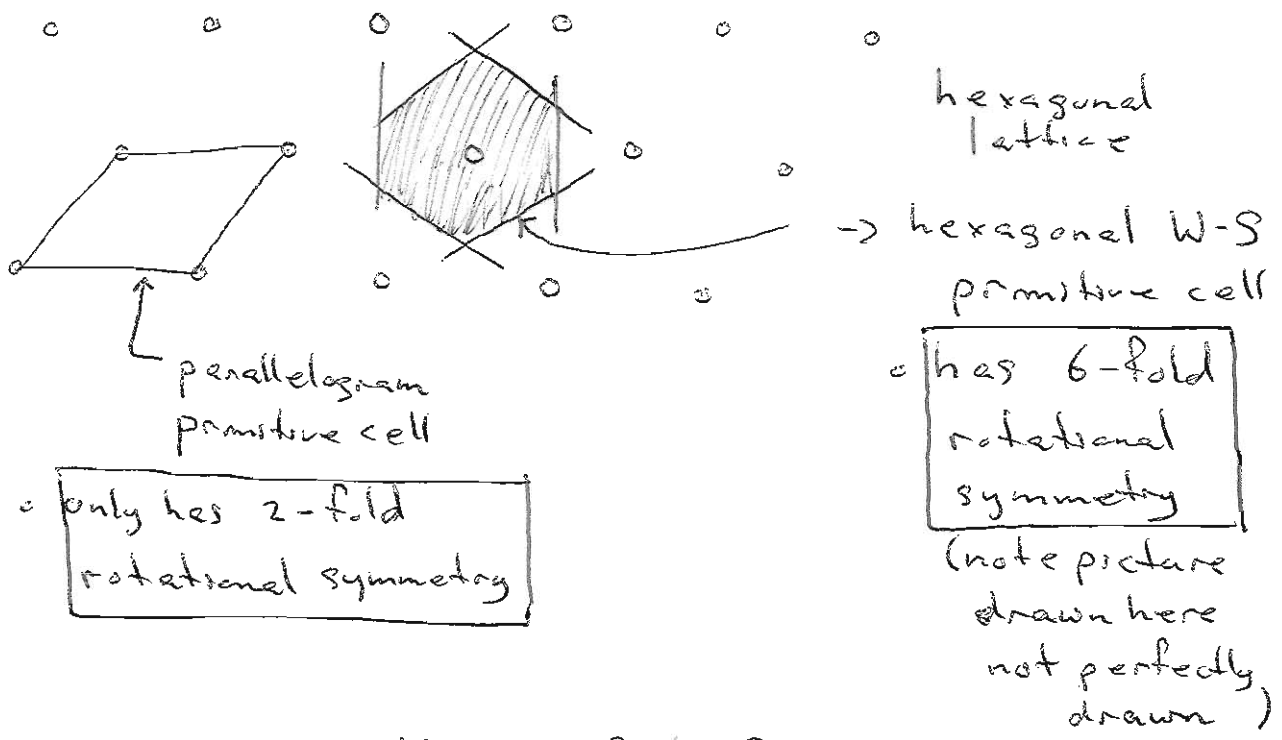 hexagonal
lattice
-> hexagonal W-S
primitive cell
• has 6-fold
rotational
symmetry
(note picture
drawn here
not perfectly
drawn)
parallelogram
primitive cell
• only has 2-fold
rotational symmetry